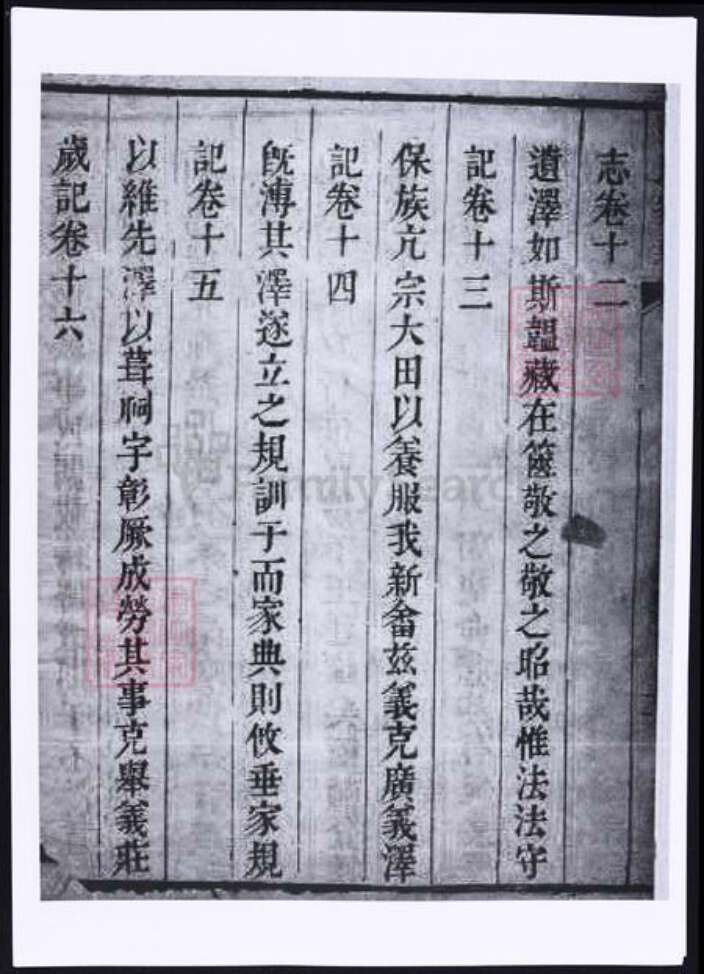 志卷十二
遺澤如斯韞藏在篋敬之敬之昭哉惟法法守
記卷十三
保族亢宗大田以養服我新畬茲義克廣義澤
記卷十四
旣溥其澤遂立之規訓于而家典則攸垂家規
記卷十五
以維先澤以葺祠宇彰厥成勞其事克舉義莊
歲記卷十六
FamilySearch